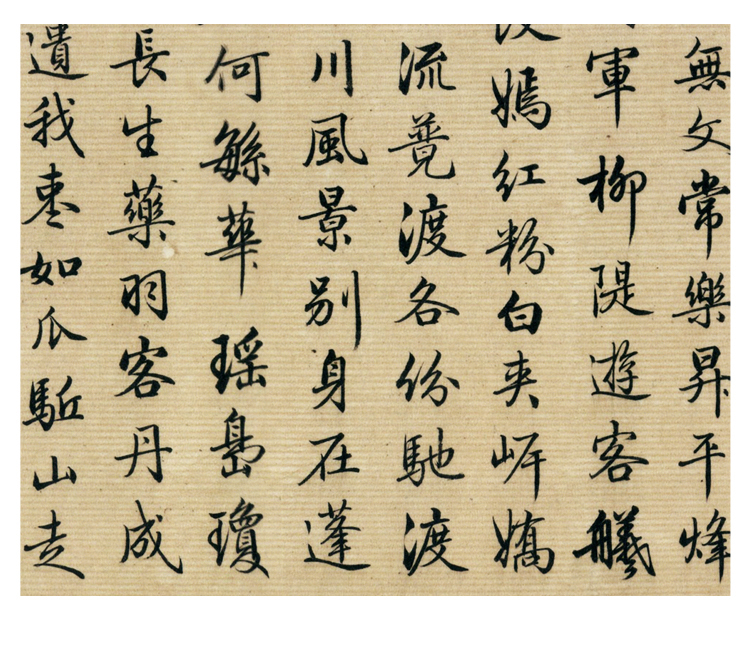 無文常樂昇平烽
軍柳隄遊客艤
嫣紅粉白夾岍嬌
流竟渡各份馳渡
川風景別身在蓬
何繇華瑶島瓊
長生藥羽客丹成
遺我枣如瓜駈山走